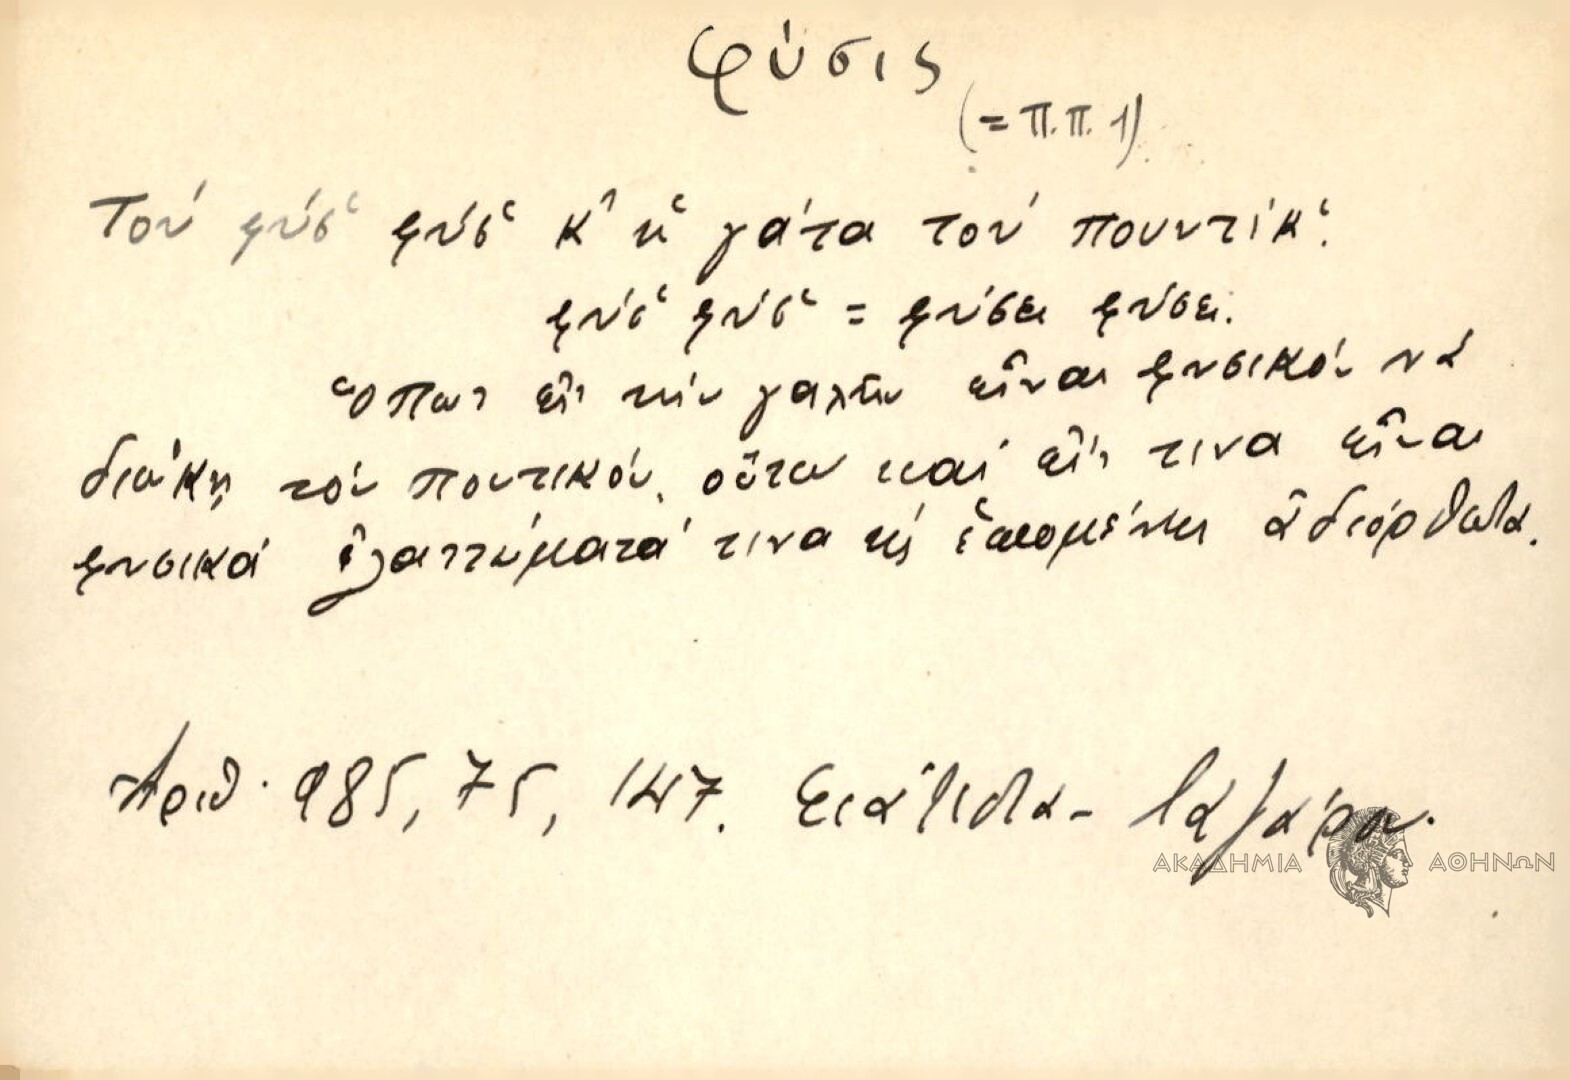 φύσις
(= Π.Π. 1)
Τού φύσ' φύσ' κ' ἡ γάτα τού πουντίκ'.
φύσ' φύσ' = φύσει φύσει.
Ὅπως εἰς τήν γαλῆν εἶναι φυσικόν νά
διώκῃ τόν ποντικόν, οὕτω καί εἴς τινα εἶναι
φυσικά ἐλαττώματά τινα ὡς ἑπομένως ἀδιόρθωτα.
Ἀριθ. 985, 75, 147. Σιάτιστα - Λαζάρου.
ΑΚΑΔΗΜΙΑ ΑΘΗΝΩΝ